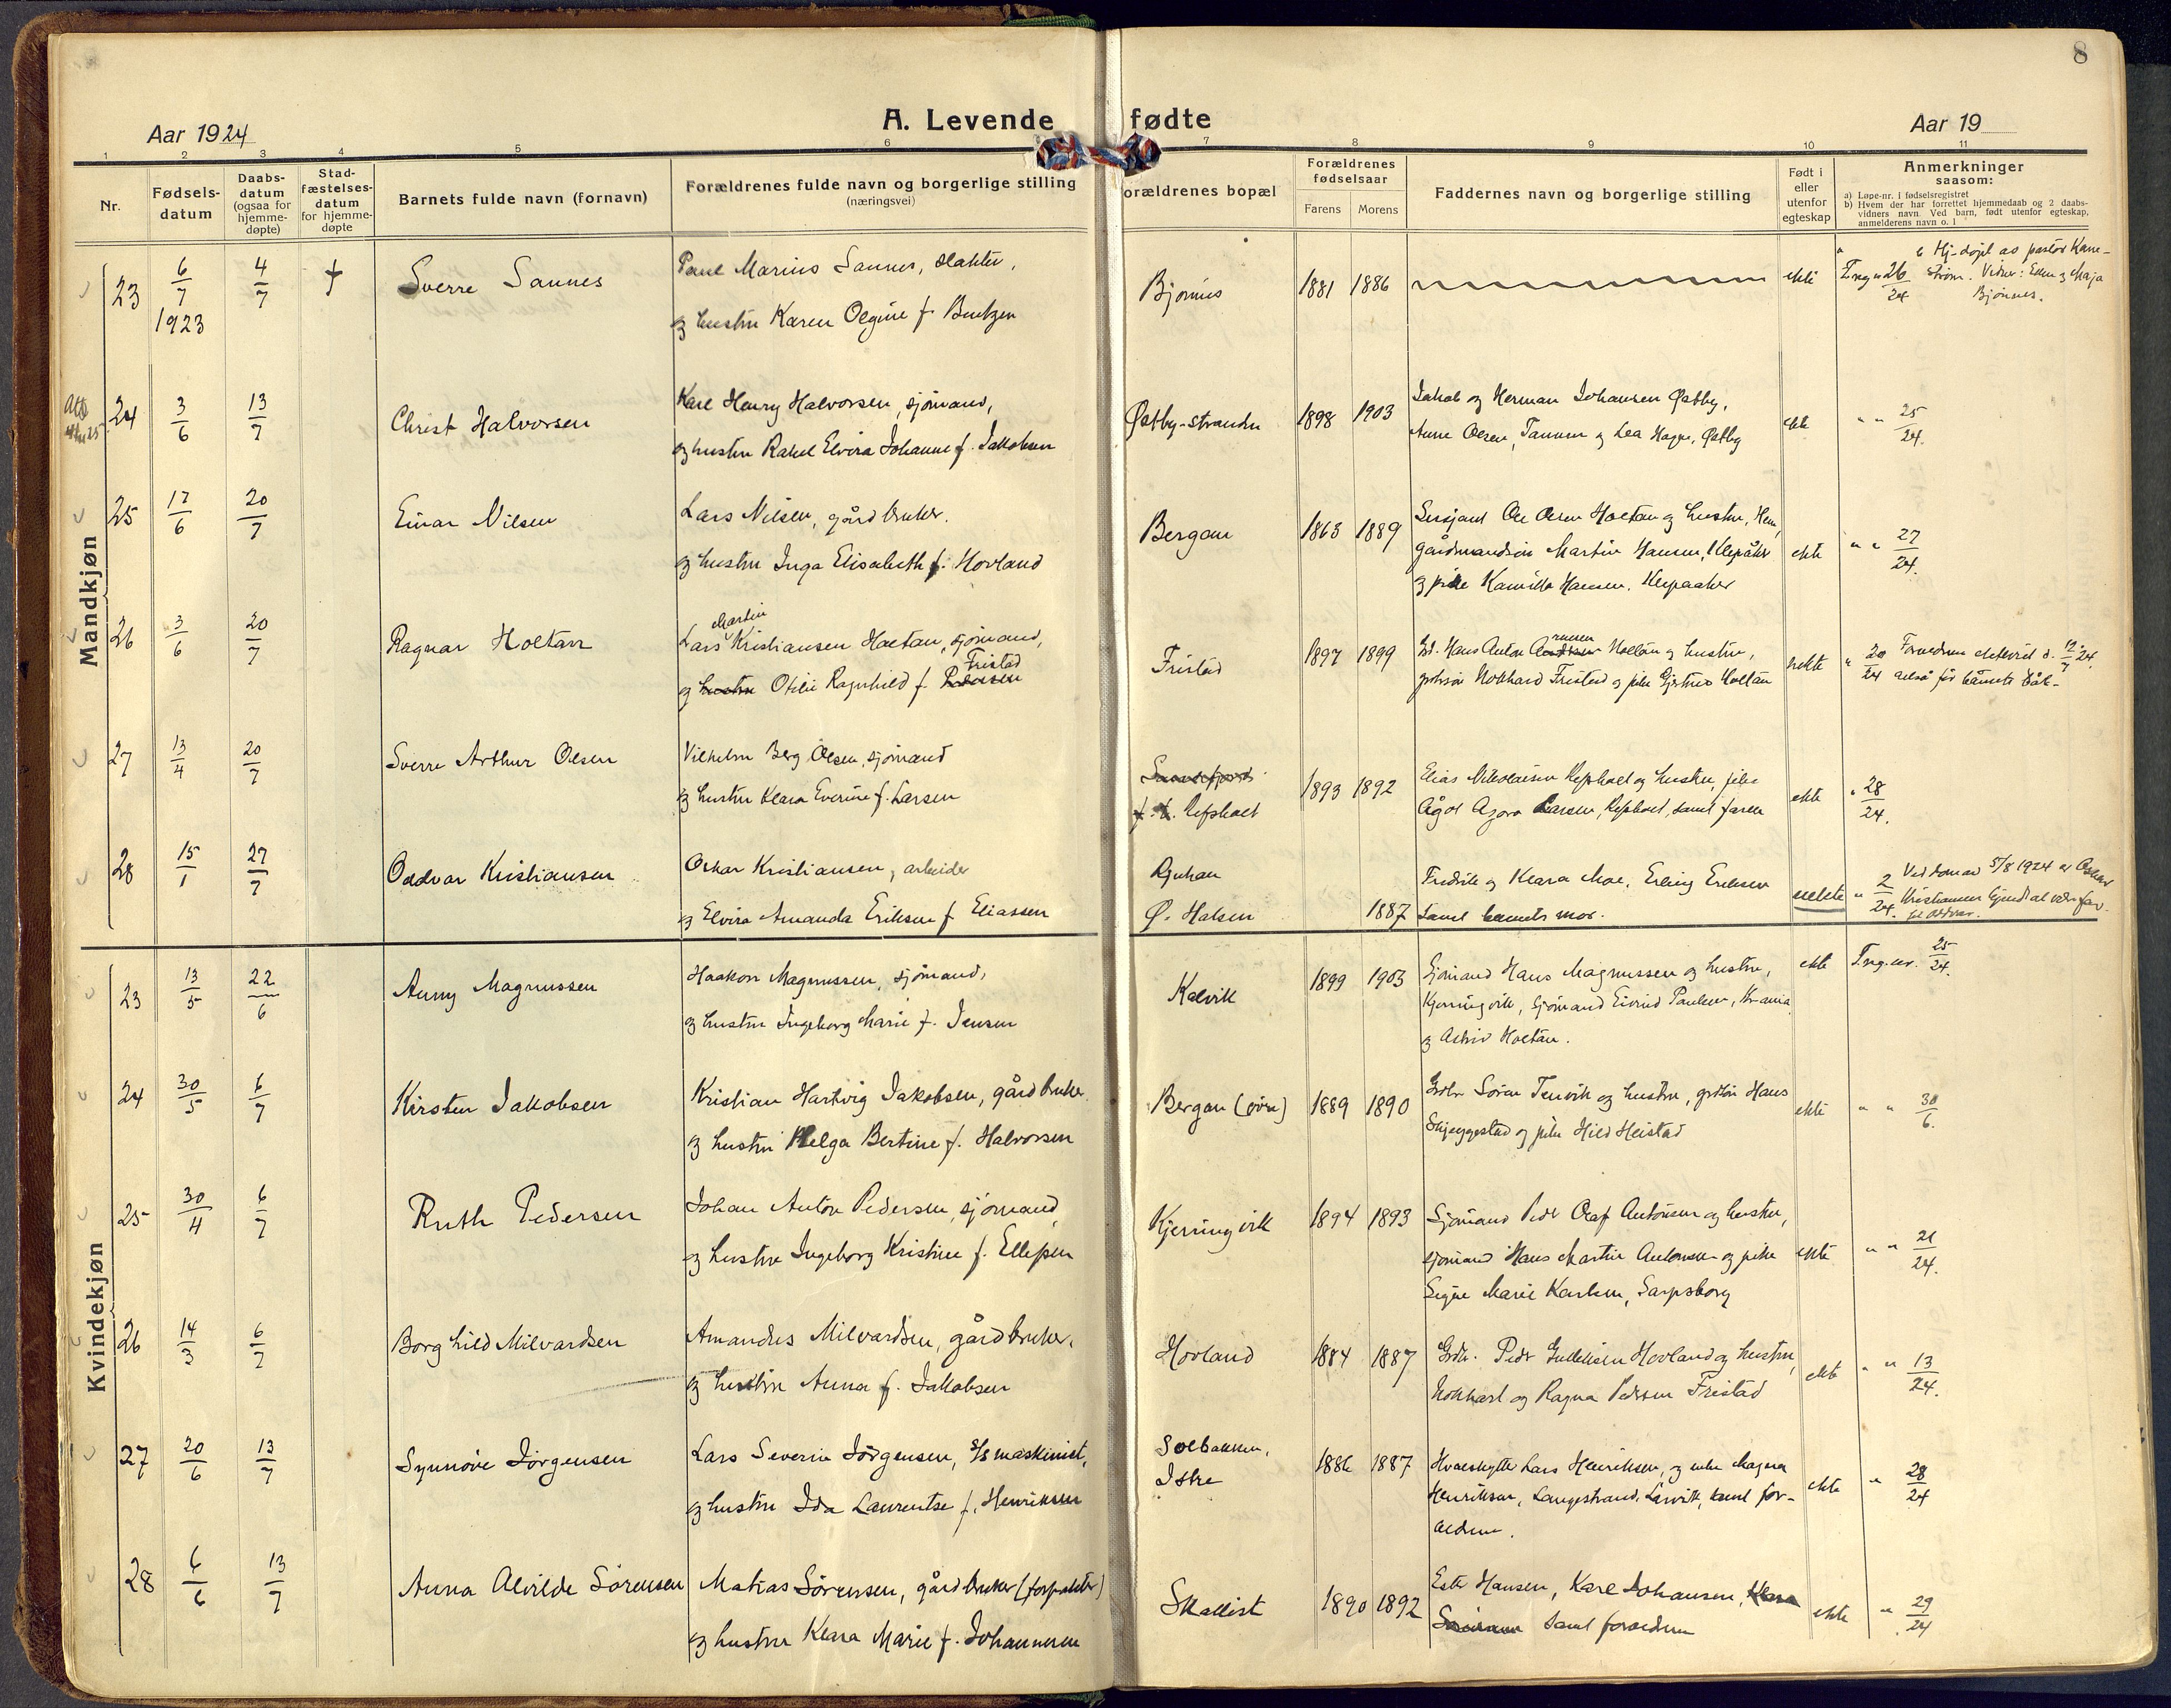 8
Aar 1924
A. Levende fødte
Aar 19
1 2 3 4 5 6 7 8 9 10 11
Nr.
Fødsels-
datum
Daabs-
datum
(ogsaa for
hjemme-
døpte)
Stad-
fæstelses-
datum
for hjemme-
døpte
Barnets fulde navn (fornavn)
Forældrenes fulde navn og borgerlige stilling
(næringsvei)
orældrenes bopæl
Forældrenes
fødselsaar
Farens Morens
Faddernes navn og borgerlige stilling
Født i
eller
utenfor
egteskap
Anmerkninger
saasom:
a) Løpe-nr. i fødselsregistret
b) Hvem der har forrettet hjemmedaab og 2 daabs-
vidners navn. Ved barn, født utenfor egteskap,
anmelderens navn o. l
Mandkjøn
23 6/7 1923 4/7 † Sverre Sannes
Paul Marius Sannes, slakter,
og hustru Karen Olgine f. Bentzen
Bjønnes 1881 1886 ekte
b Hj-døpt av pastor Kam-
F.reg.nr 26/24 strøm. Vidner: Ellen og Maja
Bjønnes.
24 3/6 13/7 Christ Halvorsen
Karl Henry Halvorsen, sjømand,
og hustru Rakel Elvira Johanne f. Jakobsen
Østby-stranden 1898 1903
Jakob og Herman Johansen Østby,
Anne Olsen, Tannum og Lea Hagne, Østby
ekte " " 25/24.
25 17/6 20/7 Einar Nilsen
Lars Nilsen, gårdbruker.
og hustru Inga Elisabeth f. Hovland
Bergan 1863 1889
Sersjant Ole Olsen Holtan og hustru, Hem
gårdmandsøn Martin Hansen, Klepåker
og pike Kamilla Hansen, Klepaaker
ekte " " 27/24.
26 3/6 20/7 Ragnar Holtan
Martin
Lars Kristiansen Holtan, sjømand,
Fristad
og hustru Otilie Ragnhild f. Pedersen
Fristad 1897 1899
Gb. Hans Anton Holtan og hustru,
grdsøn Nokhard Fristad og pike Gjertrud Holtan
uekte " 20/24 Forældrene ektevied d. 12/7 24,
altså før barnets dåb-
27 13/4 20/7 Sverre Arthur Olsen
Vilhelm Berg Olsen, sjømand
og hustru Klara Everine f. Larsen
Sandefjord
f. t. Refsholt 1893 1892
Elias Nikolaisen Refsholt og hustru, pike
Ågot Agora Larsen, Refsholt, samt faren
ekte " 28/24.
28 15/1 27/7 Oddvar Kristiansen
Oskar Kristiansen, arbeider
og Elvira Amanda Eriksen f. Eliassen
Rjukan
Ø. Halsen 1887
Fredrik og Klara Moe, Erling Eriksen
samt barnets mor.
uekte " 2/24. Ved dom av 5/8 1924 er Oskar
Kristiansen kjendt at være far
til Oddvar.
Kvindekjøn
23 13/5 22/6 Anny Magnussen
Haakon Magnussen, sjømand,
og hustru Ingeborg Marie f. Jensen
Kalvik 1899 1903
Sjømand Hans Magnussen og hustru,
Kjerringvik, sjømand Eivind Paulsen, Kr-ania
og Astrid Holtan.
ekte F.reg.nr. 25/24.
24 30/5 6/7 Kirsten Jakobsen
Kristian Hartvig Jakobsen, gårdbruker
og hustru Helga Bertine f. Halvorsen
Bergan (øvre) 1889 1890
Grdbr. Søren Tenvik og hustru, grdsøn Hans
Skjeggestad og pike Hild Heistad
ekte " " 30/6.
25 30/4 6/7 Ruth Pedersen
Johan Anton Pedersen, sjømand
og hustru Ingeborg Kristine f. Ellefsen
Kjerringvik 1894 1893
Sjømand Peder Olaf Antonsen og hustru,
sjømand Hans Martin Antonsen og pike
Signe Marie Karlsen, Sarpsborg
ekte " " 21/24.
26 14/3 6/7 Borghild Milvardsen
Amandus Milvardsen, gårdbruker.
og hustru Anna f. Jakobsen
Hovland 1884 1887
Grdbr. Peder Gulliksen Hovland og hustru,
Nokhart og Ragna Pedersen Fristad
ekte " " 13/24.
27 20/6 13/7 Synnøve Jørgensen
Lars Severin Jørgensen, S/S maskinist,
og hustru Ida Laurentse f. Henriksen
Solbakken,
Istre 1886 1887
Hvalskytter Lars Henriksen, og enke Magna
Henriksen, Langestrand, Larvik, samt for-
ældrene.
ekte " 28/24
28 6/6 13/7 Anna Alvilde Sørensen
Matias Sørensen, gårdbruker (forpakter)
og hustru Klara Marie f. Johannesen
Skallist 1890 1892
Ester Hansen, Karl Johansen, Klara
samt forældrene
ekte " 29/24